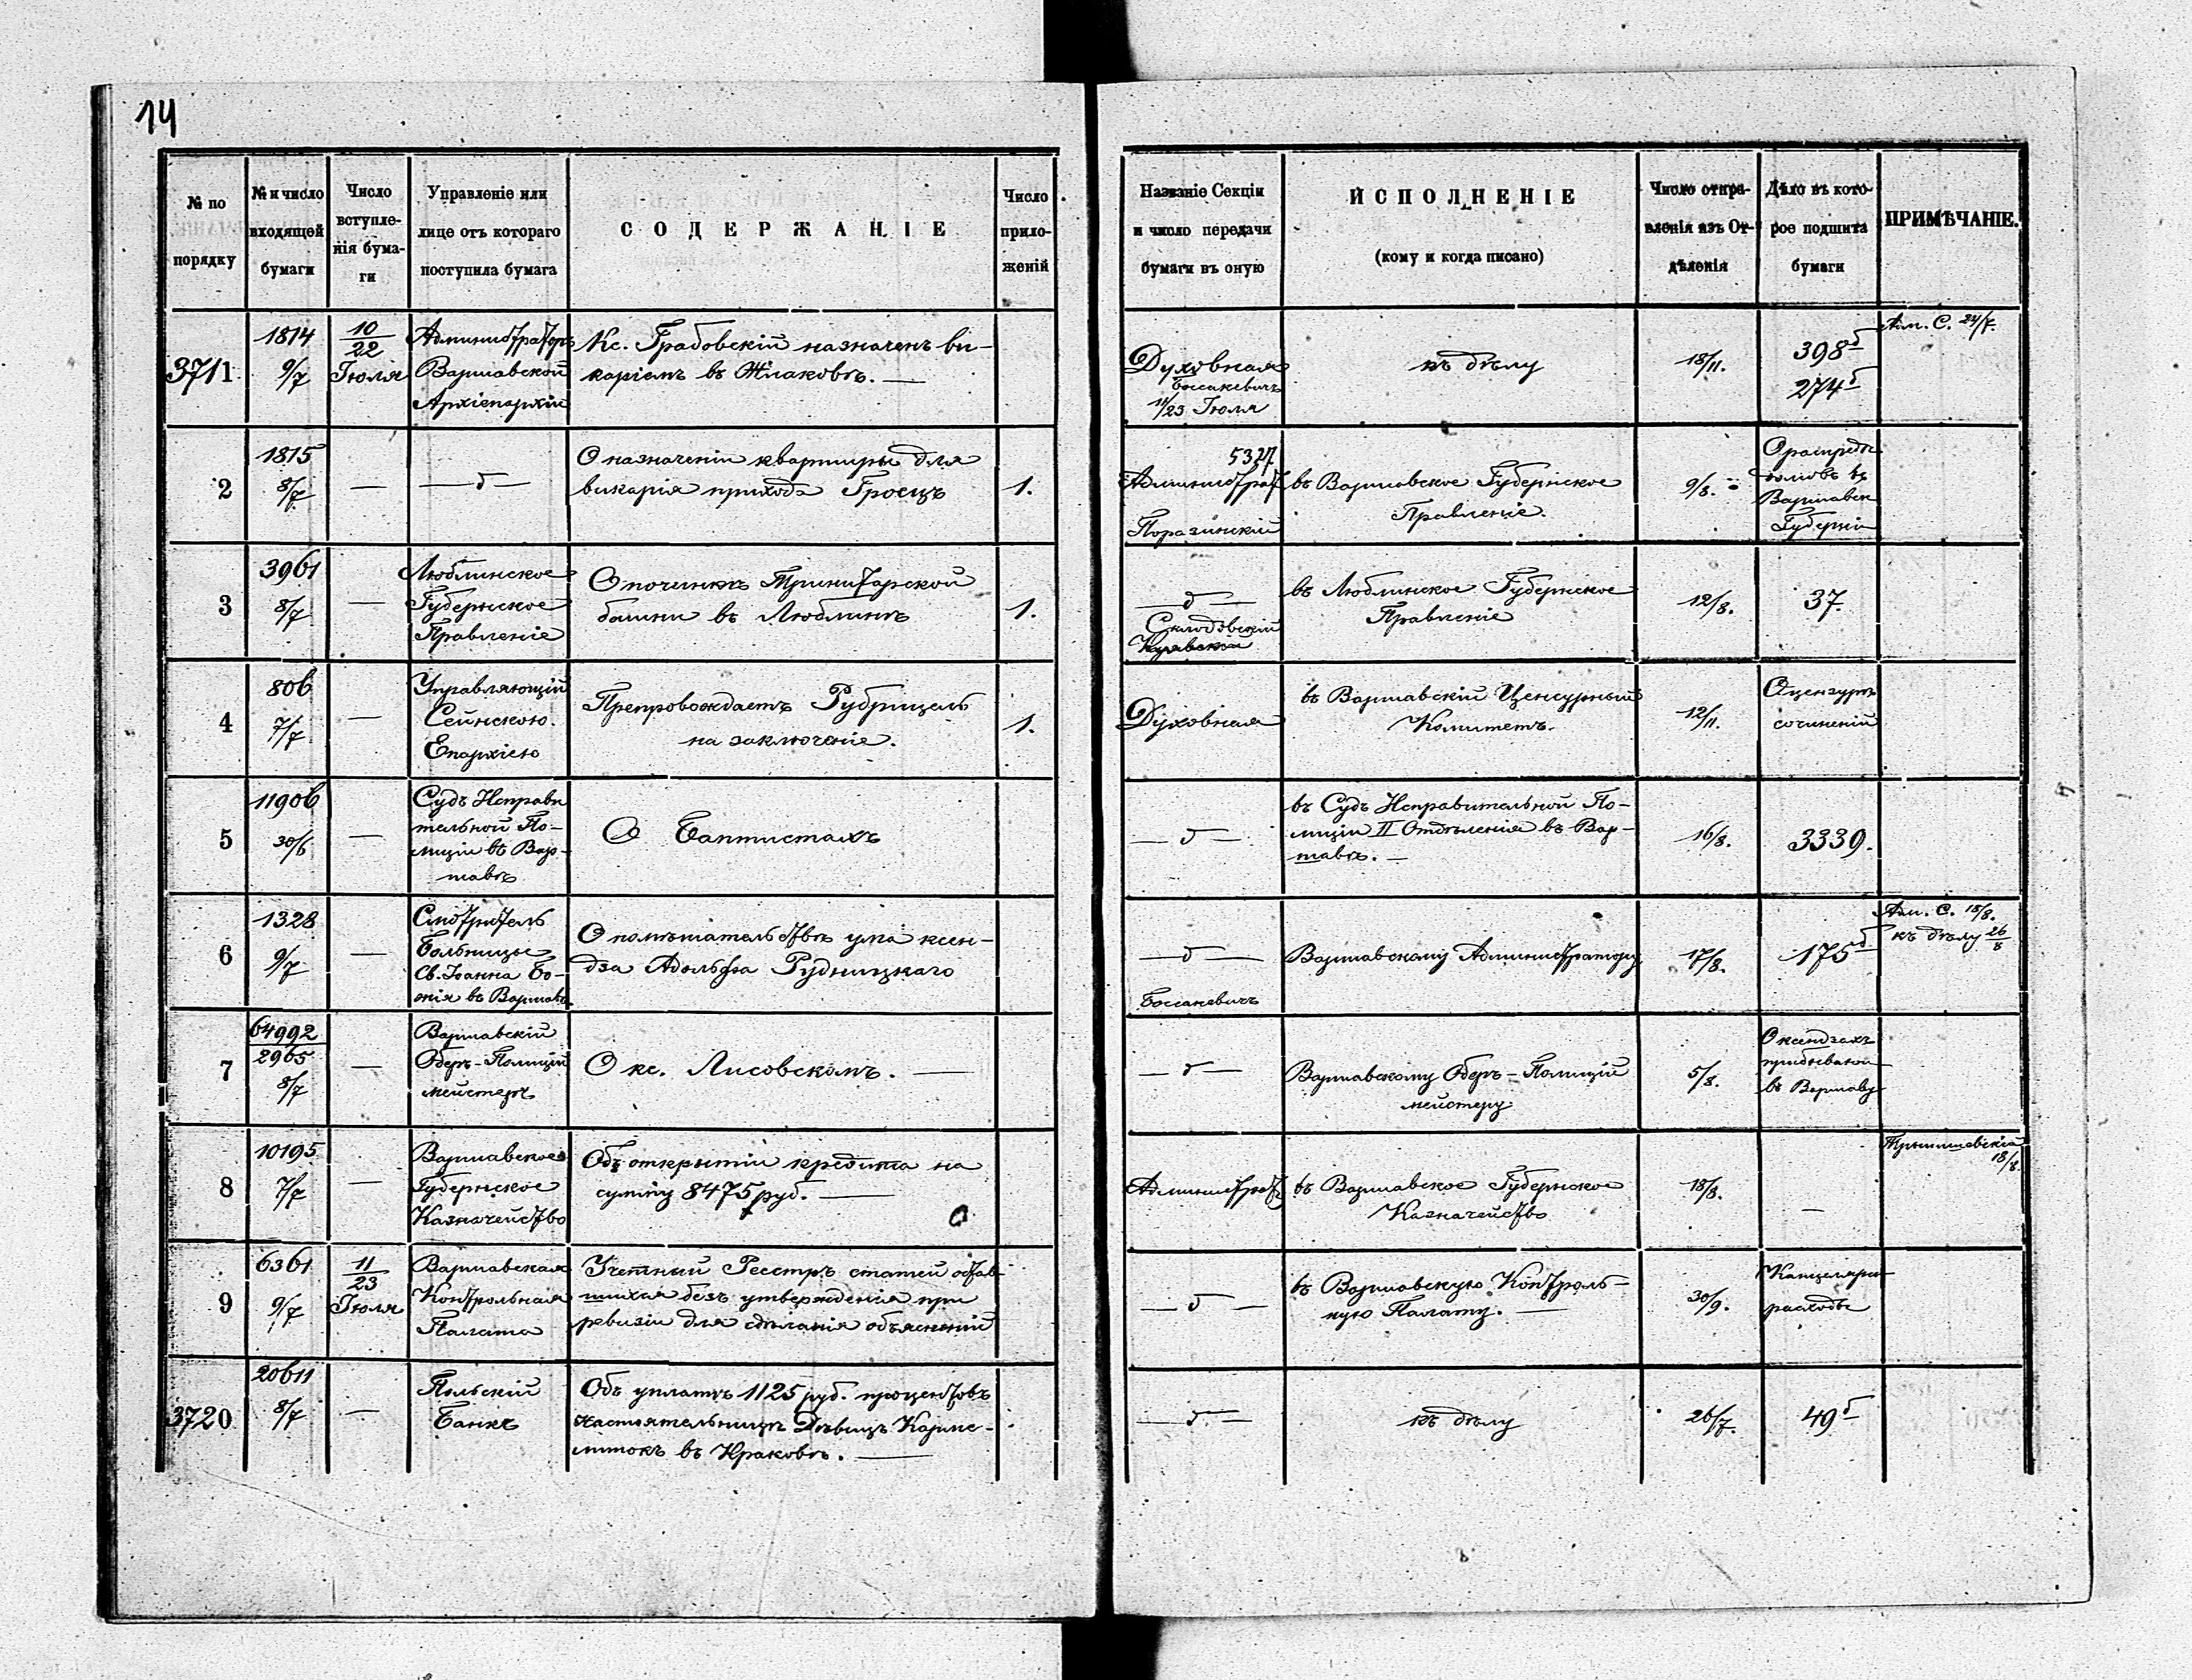 14
№ по порядку
№ и число входящей бумаги
Число вступленія бумаги
Управленіе или лице отъ котораго поступила бумага
СОДЕРЖАНІЕ
Число приложеній
Названіе Секціи и число передачи бумаги въ оную
ИСПОЛНЕНІЕ
(кому и когда писано)
Число отправленія изъ Отдѣленія
Дѣло въ которое подшита бумаги
ПРИМѢЧАНІЕ.
3711
1814
9/7
10/22 Іюля
Администраторъ
Варшавской
Архіепархіи
Кс. Грабовскій назначенъ ви-
каріемъ въ Жлаковѣ. —
Духовная
Боссакевичъ
11/23 Іюля
къ дѣлу
18/11.
398 б
274 б
Адм. С. 24/7.
2
1815
8/7
—
— б —
О назначеніи квартиры для
викарія прихода Гроецъ
1.
5327
Администрат
Поразинскій
въ Варшавское Губернское
Правленіе.
9/8.
Варшавск
Губерніи
3
3961
8/7
—
Люблинское
Губернское
Правленіе
О починкѣ Тринитарской
башни въ Люблинѣ
1.
— б —
Склодовскій
въ Люблинское Губернское
Правленіе
12/8.
37.
4
806
7/7
—
Управляющій
Сейнскою
Епархіею
Препровождаетъ Рубрицель
на заключеніе.
1.
Духовная
въ Варшавскій Цензурный
Комитетъ.
12/11.
О цензурѣ
сочиненій
5
11906
30/6
—
Судъ Исправи
тельной По-
лиціи въ Вар-
шавѣ
О Баптистахъ
— б —
въ Судъ Исправительной По-
лиціи II Отдѣленія въ Вар-
шавѣ. —
16/8.
3339.
6
1328
9/7
—
Смотритель
Больницы
Св. Іоанна Бо-
жія въ Варшавѣ
О помѣшательствѣ ума ксен-
дза Адольфа Рудницкаго
— б —
Боссакевичъ
Варшавскому Администратору
17/8.
175 б
Адм. С. 18/8.
къ дѣлу 26/8
7
64992
2965
8/7
—
Варшавскій
Оберъ-Полиций
мейстеръ
О кс. Лисовскомъ. —
— б —
Варшавскому Оберъ-Полиций
мейстеру
5/8.
О ксендзахъ
въ Варшаву
8
10195
7/7
—
Варшавское
Губернское
Казначейство
Объ открытіи кредита на
сумму 8475 руб. —
Администрат
въ Варшавское Губернское
Казначейство
18/8.
—
18/8.
9
6361
9/7
11/23 Іюля
Варшавская
Контрольная
Палата
Учетный Реестръ статей остав-
шихся безъ утвержденія при
ревизіи для сдѣланія объясненій
— б —
въ Варшавскую Контроль-
ную Палату. —
30/9.
расходы
3720
20611
8/7
—
Польскій
Банкъ
Объ уплатѣ 1125 руб. процентовъ
настоятельницѣ Дѣвицъ Карме-
литокъ въ Краковѣ. —
— б —
къ дѣлу
26/7.
49 б